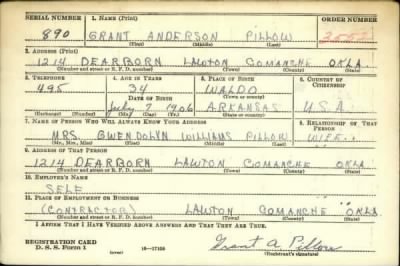 SERIAL NUMBER 1. NAME (Print) ORDER NUMBER
890 GRANT ANDERSON PILLOW
(First) (Middle) (Last)
2. ADDRESS (Print)
1214 DEARBORN LAWTON COMANCHE OKLA.
(Number and street or R. F. D. number) (Town) (County) (State)
3. TELEPHONE 4. AGE IN YEARS 5. PLACE OF BIRTH 6. COUNTRY OF CITIZENSHIP
495 34 WALDO
DATE OF BIRTH (Town or county)
July 7 1906 ARKANSAS U.S.A.
(Exchange) (Number) (Mo.) (Day) (Yr.) (State or country)
7. NAME OF PERSON WHO WILL ALWAYS KNOW YOUR ADDRESS 8. RELATIONSHIP OF THAT PERSON
MRS. GWENDOLYN WILLIAMS PILLOW WIFE
(Mr., Mrs., Miss) (First) (Middle) (Last)
9. ADDRESS OF THAT PERSON
1214 DEARBORN LAWTON COMANCHE OKLA
(Number and street or R. F. D. number) (Town) (County) (State)
10. EMPLOYER'S NAME
SELF
11. PLACE OF EMPLOYMENT OR BUSINESS
(CONTRACTOR) LAWTON COMANCHE OKLA.
(Number and street or R. F. D. number) (Town) (County) (State)
I AFFIRM THAT I HAVE VERIFIED ABOVE ANSWERS AND THAT THEY ARE TRUE.
REGISTRATION CARD
D. S. S. Form 1 Grant A Pillow
(over) (Registrant's signature)